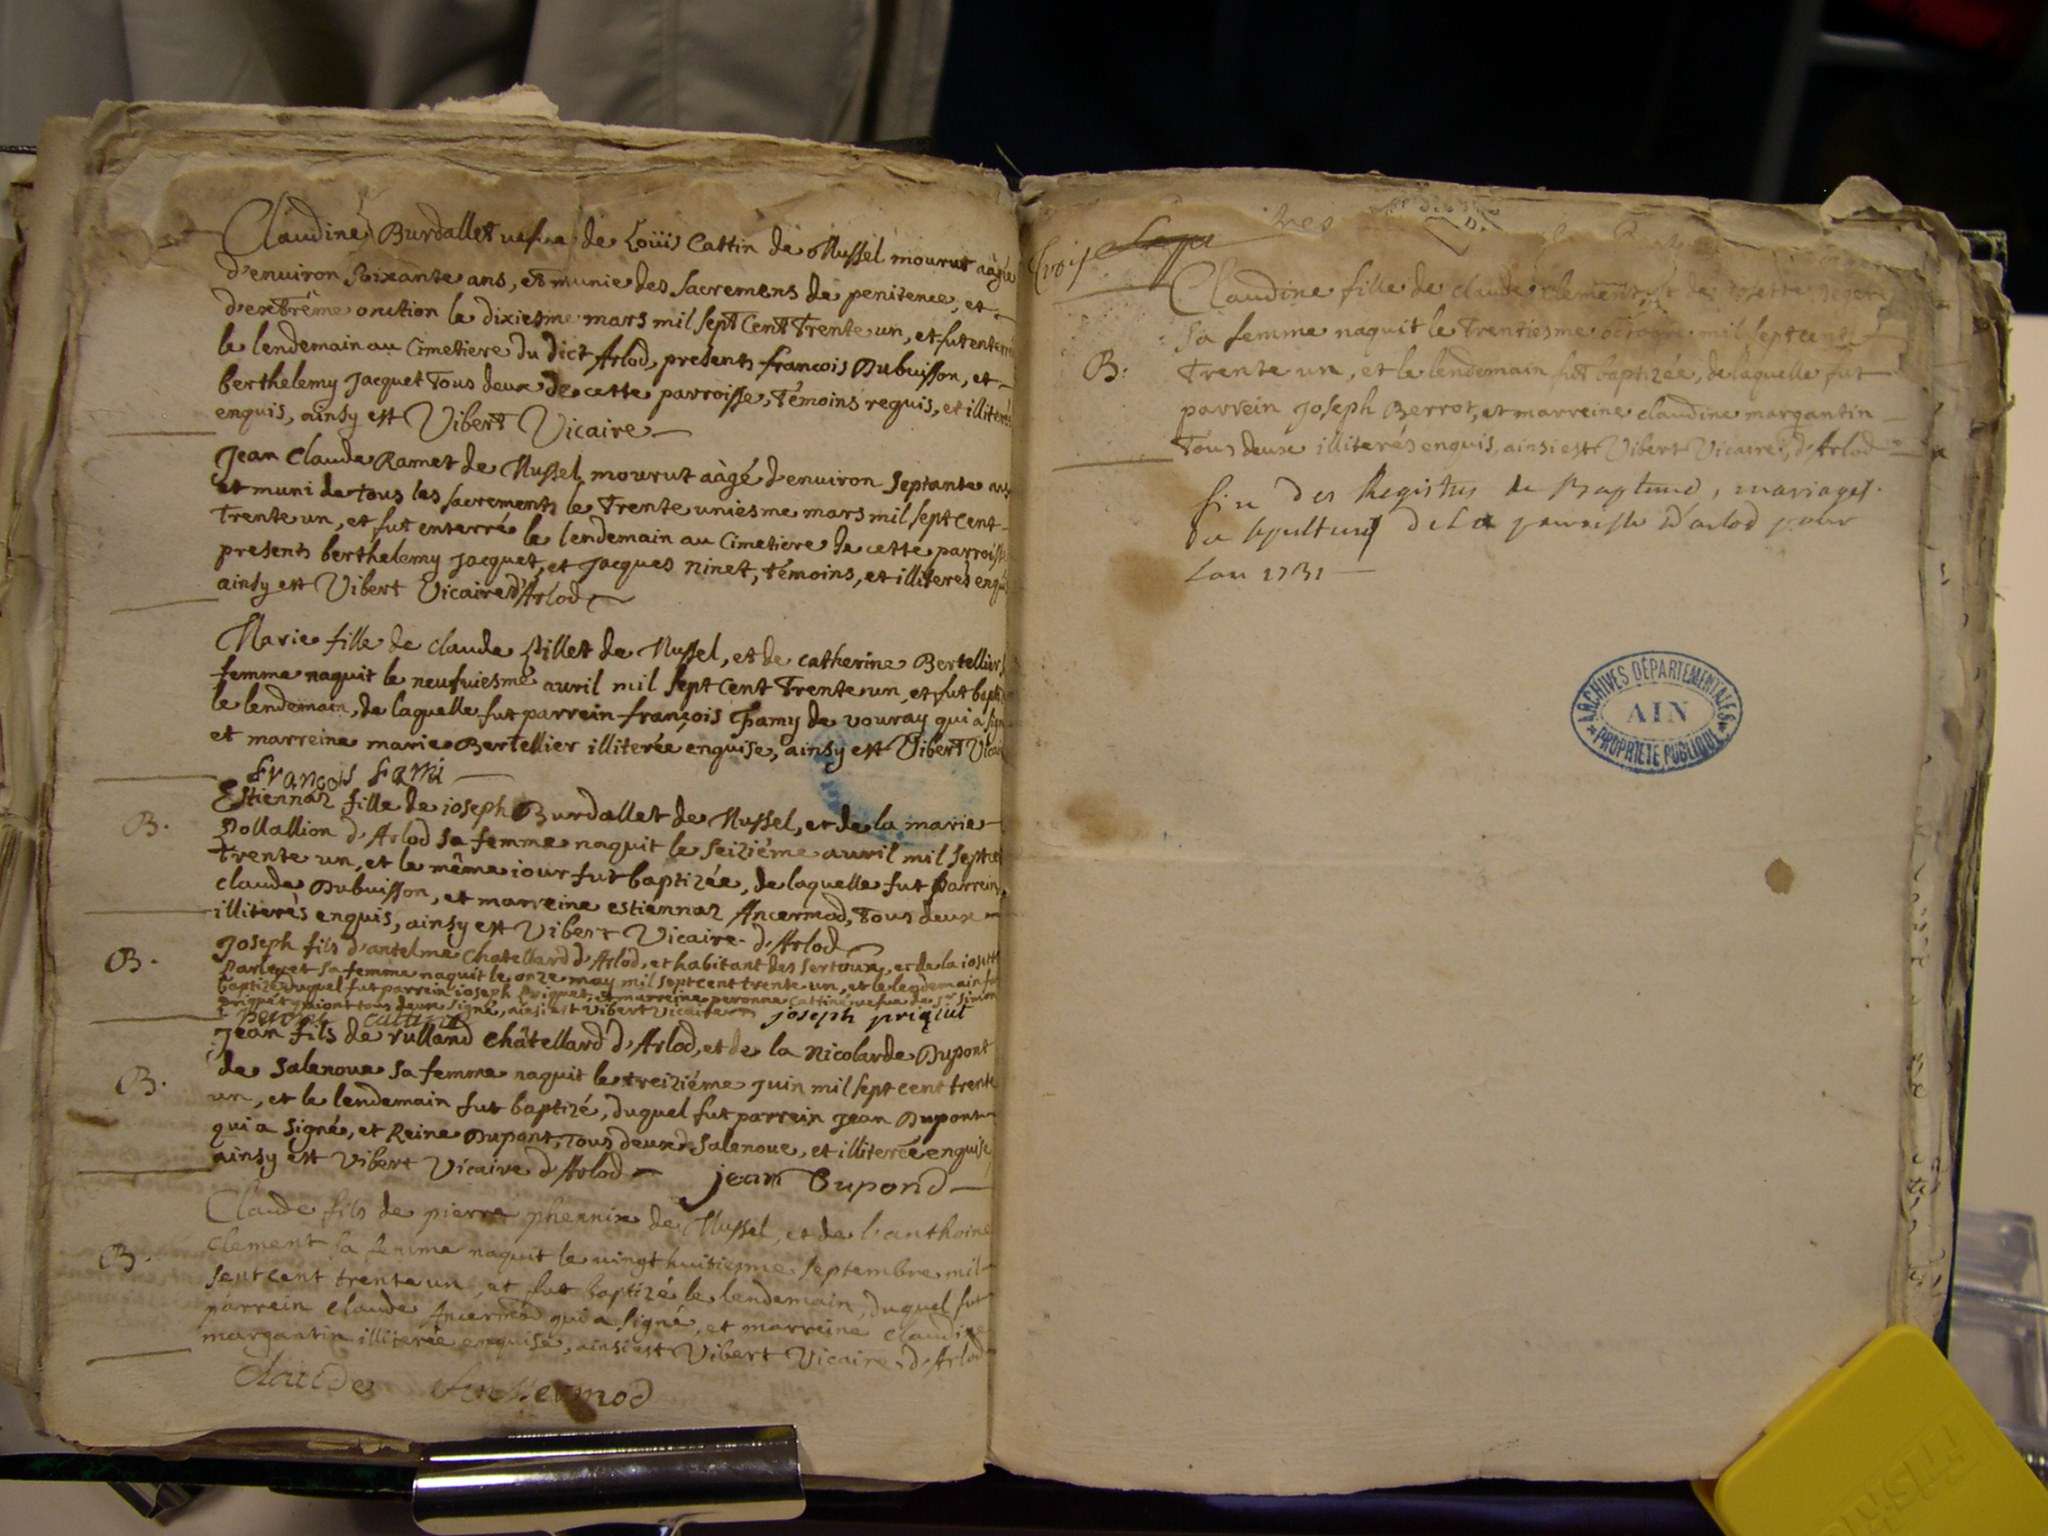 Claudine Burdallet vefve de Loüis Cattin de Mussel mourut aàgée
d'environ soixante ans, et munie des sacremens de penitence, et
d'extrême onction le dixiesme mars mil sept Cent Trente un, et fut enterrée
le lendemain au Cimetiere du dict Arlod, presents francois Dubuisson, et
berthelemy Jacquet tous deux de cette parroisse, Témoins requis, et illiterés
enquis, ainsy est Vibert Vicaire
Jean Claude Ramet de Mussel mourut aàgé d'environ septante ans
et muni de tous les sacrements le Trente uniesme mars mil sept cent
Trente un, et fut enterré le lendemain au Cimetiere de cette parroisse
presents berthelemy Jacquet, et Jacques ninet, témoins, et illiterés enquis
ainsy est Vibert Vicaire d'Arlod
Marie fille de claude pillet de Mussel, et de catherine Bertellier
femme naquit le neufviesme avril mil sept Cent Trente un, et fut bapti
le lendemain, de laquelle fut parrein françois Famy de vouvray qui a sign
et marreine marie Bertellier illiterée enquise, ainsy est Vibert Vicai
François Fami
B. Estiennaz fille de joseph Burdallet de Mussel, et de la marie
Pollallion d'Arlod sa femme naquit le seiziéme avril mil sept ce
Trente un, et le même jour fut baptizée, de laquelle fut parrein
claude Dubuisson, et marreine estiennaz Ancermod, Tous deux
illiterés enquis, ainsy est Vibert Vicaire d'Arlod
B. Joseph fils d'antelme Chatellard d'Arlod, et habitant des sertoux, et de la josette
sa femme naquit le onze may mil sept cent trente un, et le lendemain fut
baptizé duquel fut parrein joseph priquet, et marreine peronne cattin vefve de sr simon
priquet qui ont tous deux signé, ainsi est Vibert Vicaire joseph priqiut
B. Jean fils de rulland Châtellard d'Arlod, et de la nicolarde Dupont
de salenove sa femme naquit le treiziéme juin mil sept cent trente
un, et le lendemain fut baptizé, duquel fut parrein jean Dupont
qui a signé, et Reine Dupont, Tous deux de salenove, et illiterée enquise
ainsy est Vibert Vicaire d'Arlod jean Dupond
B. Claude fils de pierre phennix de Mussel, et de l'anthoine
Clement sa femme naquit le vingt huitiesme septembre mil
sept cent trente un, et fut baptizé le lendemain, duquel fut
parrein claude Ancermod qui a signé, et marreine claudine
margantin illiterée enquise, ainsi est Vibert Vicaire d'Arlod
Claude Ancermod
B: Claudine fille de claude clement, et de
sa femme naquit le Trentiesme octobre mil sept cent
Trente un, et le lendemain fut baptizée, de laquelle fut
parrein Joseph Berrot, et marreine claudine margantin
Tous deux illiterés enquis, ainsi est Vibert Vicaire d'Arlod
fin des Registres de Baptemes, mariages
de sepultures de La parroisse d'arlod pour
Lan 1731
ARCHIVES DÉPARTEMENTALES
AIN
PROPRIÉTÉ PUBLIQUE